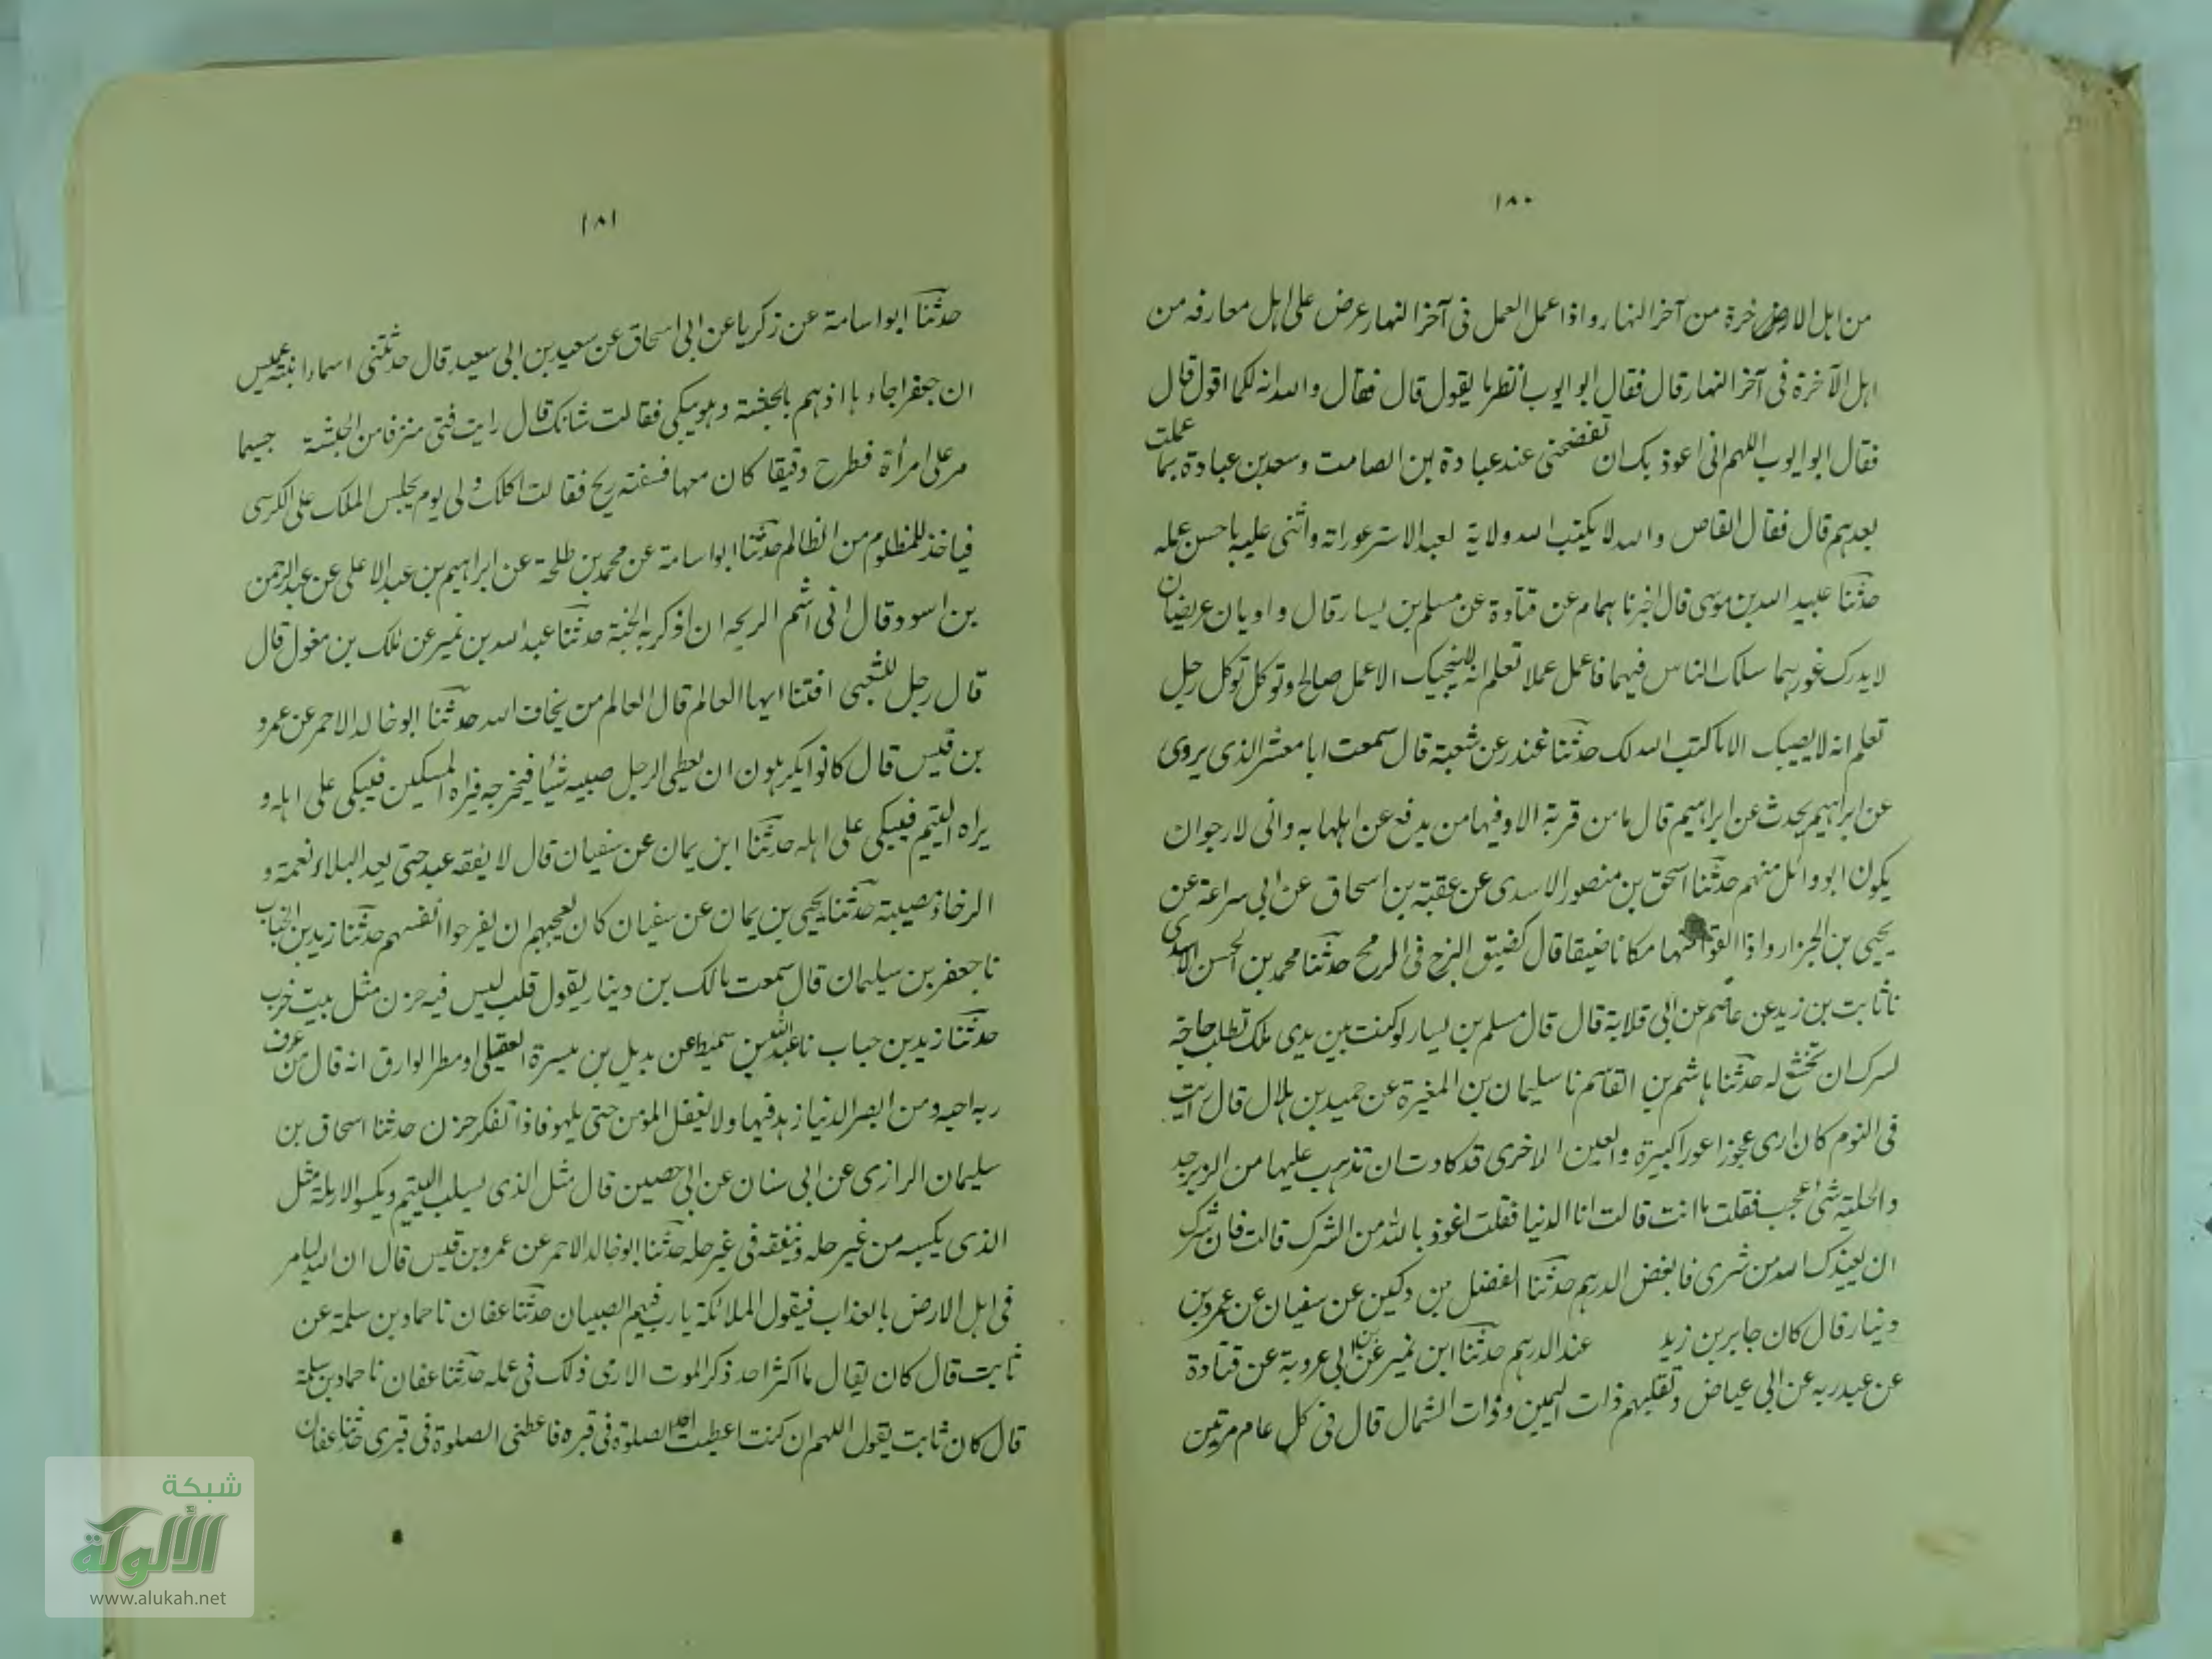 ١٨٠
من اهل الارض خرة من آخر النهار و اذا عمل العمل فى آخر النهار عرض على اهل معارفه من
اهل الآخرة فى آخر النهار قال فقال ابو ايوب انظر ما يقول قال فقال والله انه لكما اقول قال
فقال ابو ايوب اللهم انى اعوذ بك ان تفضحنى عند عبادة بن الصامت وسعد بن عبادة بما عملت
بعدهم قال فقال القاص والله لا يكتب الله ولاية لعبد الا ستر عوراته واثنى عليه باحسن عمله
حدثنا عبيد الله بن موسى قال اخبرنا همام عن قتادة عن مسلم بن يسار قال واديان عريضان
لا يدرك غورهما سلك الناس فيهما فاعمل عملا تعلم انه لا ينجيك الا عمل صالح وتوكل توكل رجل
تعلم انه لا يصيبك الا ما كتب الله لك حدثنا غندر عن شعبة قال سمعت ابا معشر الذى يروى
عن ابراهيم يحدث عن ابراهيم قال ما من قرية الا وفيها من يدفع عن اهلها به وانى لارجو ان
يكون ابو وائل منهم حدثنا اسحق بن منصور الاسدى عن عقبة بن اسحاق عن ابى سراعة عن
يحيى بن الجزار واذا القوا منها مكانا ضيقا قال كضيق الزج فى الرمح حدثنا محمد بن الحسن الاسدى
نا ثابت بن زيد عن عاصم عن ابى قلابة قال قال مسلم بن يسار لو كنت بين يدى ملك تطلب حاجة
لسرك ان تخشع له حدثنا هاشم بن القاسم نا سليمان بن المغيرة عن حميد بن هلال قال رايت
فى النوم كان ارى عجوزا عورا كبيرة والعين الاخرى قد كادت ان تذهب عليها من الزبرجد
والحلية شئ عجب فقلت ما انت قالت انا الدنيا فقلت اعوذ بالله من الشرك قالت فان سرك
ان يعيذك الله من شرى فابغض الدرهم حدثنا الفضل بن دكين عن سفيان عن عمرو بن
دينار قال كان جابر بن زيد عند الدرهم حدثنا ابن نمير عن ابن ابى عروبة عن قتادة
عن عبد ربه عن ابى عياض ونقلبهم ذات اليمين وذات الشمال قال فى كل عام مرتين
١٨١
حدثنا ابو اسامة عن زكريا عن ابى اسحاق عن سعيد بن ابى سعيد قال حدثتنى اسماء ابنة عميس
ان جعفرا جاءها اذ هم بالحبشة وهو يبكى فقالت شانك قال رايت فتى منزفا من الحبشة جسيما
مر على امرأة فطرح دقيقا كان معها فسفته ريح فقالت اكلك ولى يوم يجلس الملك على الكرسى
فياخذ للمظلوم من الظالم حدثنا ابو اسامة عن محمد بن طلحة عن ابراهيم بن عبد الاعلى عن عبد الرحمن
بن اسود قال انى اشم الريحان اذكر به الجنة حدثنا عبد الله بن نمير عن ملك بن مغول قال
قال رجل للشعبى افتنا ايها العالم قال العالم من يخاف الله حدثنا ابو خالد الاحمر عن عمرو
بن قيس قال كانوا يكرهون ان يعطى الرجل صبيه شيأ فيخرجه فيراه المسكين فيبكى على اهله و
يراه اليتيم فيبكى على اهله حدثنا ابن يمان عن سفيان قال لا يفقه عبد حتى يعد البلاء نعمة و
الرخاء مصيبة حدثنا يحيى بن يمان عن سفيان كان يعجبهم ان يفرحوا انفسهم حدثنا زيد بن الحباب
نا جعفر بن سليمان قال سمعت مالك بن دينار يقول قلب ليس فيه حزن مثل بيت خرب
حدثنا زيد بن حباب نا عبد الله بن سميط عن بديل بن ميسرة العقيلى او مطر الوارق انه قال من عرف
ربه احبه ومن ابصر الدنيا زهد فيها ولا يغفل المؤمن حتى يلهو فاذا تفكر حزن حدثنا اسحاق بن
سليمان الرازى عن ابى سنان عن ابى حصين قال مثل الذى يسلب اليتيم ويكسو الارملة مثل
الذى يكسبه من غير حله وينفقه فى غير حله حدثنا ابو خالد الاحمر عن عمرو بن قيس قال ان الله ليامر
فى اهل الارض بالعذاب فيقول الملائكة يا رب فيهم الصبيان حدثنا عفان نا حماد بن سلمة عن
ثابت قال كان يقال ما اكثر احد ذكر الموت الا رى ذلك فى عمله حدثنا عفان نا حماد بن سلمة
قال كان ثابت يقول اللهم ان كنت اعطيت احدا الصلوة فى قبره فاعطنى الصلوة فى قبرى حدثنا عفان
شبكة
الألوكة
www.alukah.net